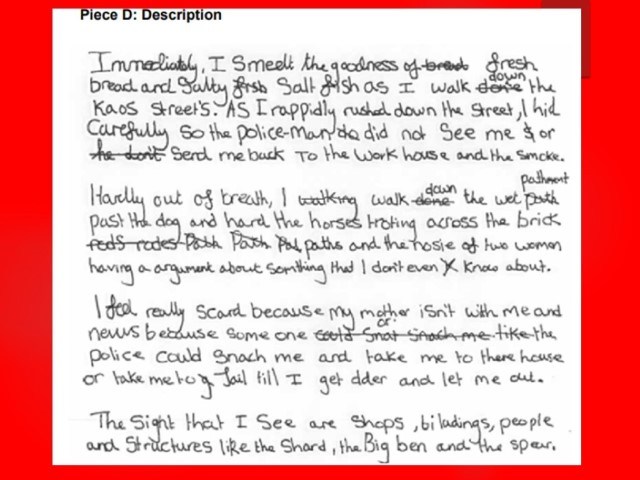 Piece D: Description
Immediately, I smeelt the goodness of bread fresh
bread and salty fish salt fish as I walk done down the
kaos street's. AS I rappidly rushed down the street, I hid
Carefully so the police-man do did not see me & or
he don't send me back to the work house and the smoke.
Hardly out of breath, I walking walk done down the wet path pathment
past the dog and hard the horses troting across the brick
reds rodes Path Path paths and the nosie of two women
having a argument about somthing that I don't even know about.
I feel really scard because my mother isn't with me and
news because some one could snat snach me or like the
police could snach me and take me to there house
or take me to Jail till I get older and let me out.
The sight that I see are shops, biladings, people
and structures like the Shard, the Big ben and the spear.